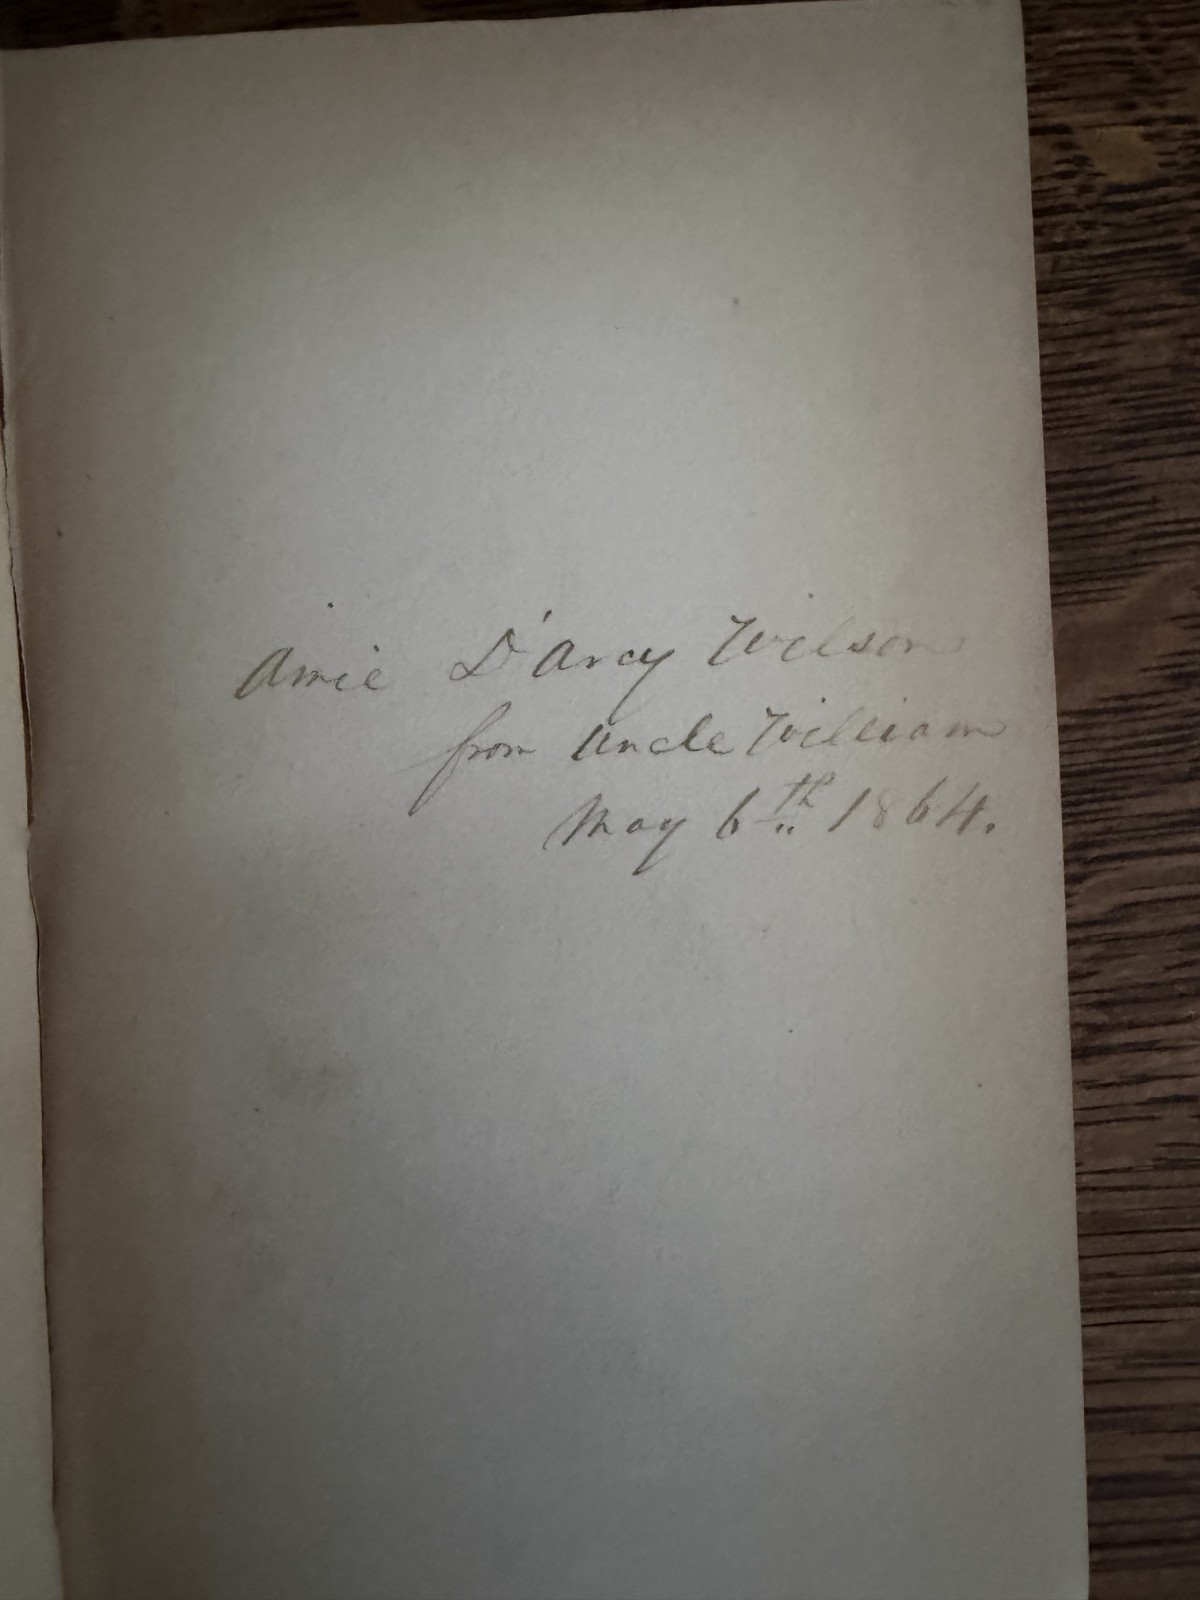 Amie D'Arcy Wilson
from Uncle William
May 6th 1864.